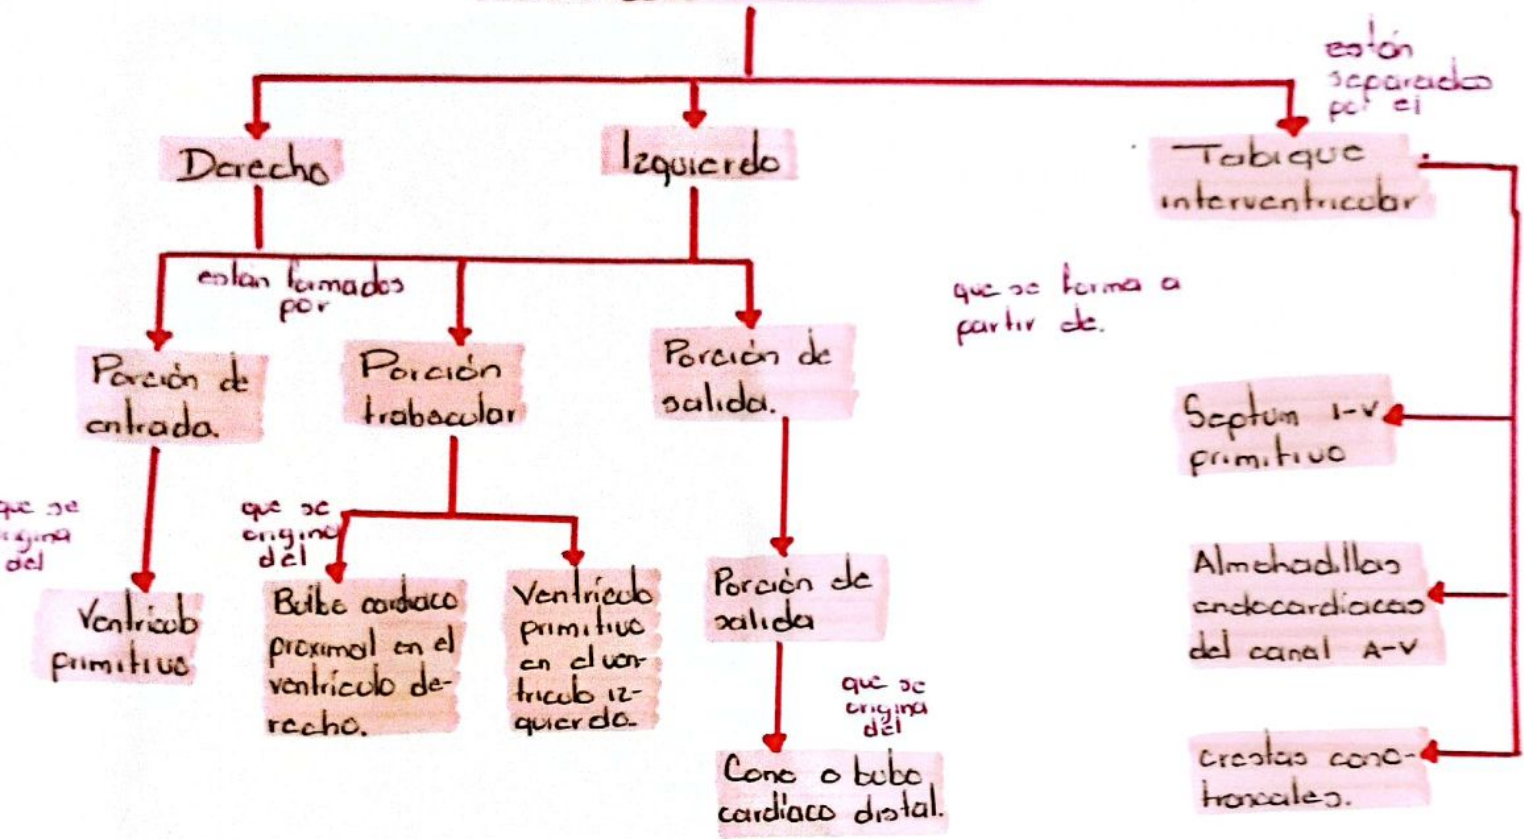 están
separados
por el
Derecho
Izquierdo
Tabique
interventricular
están formados
por
que se forma a
partir de.
Porción de
entrada.
Porción
trabecular
Porción de
salida.
Septum I-V
primitivo
que se
origina
del
que se
origina
del
Ventriculo
primitivo
Bulbo cardiaco
proximal en el
ventrículo de-
recho.
Ventrículo
primitivo
en el ven-
triculo iz-
quierdo.
Porción de
salida
Almohadillas
endocardíacas
del canal A-V
que se
origina
del
Cono o bubo
cardíaco distal.
crestas cono-
troncales.